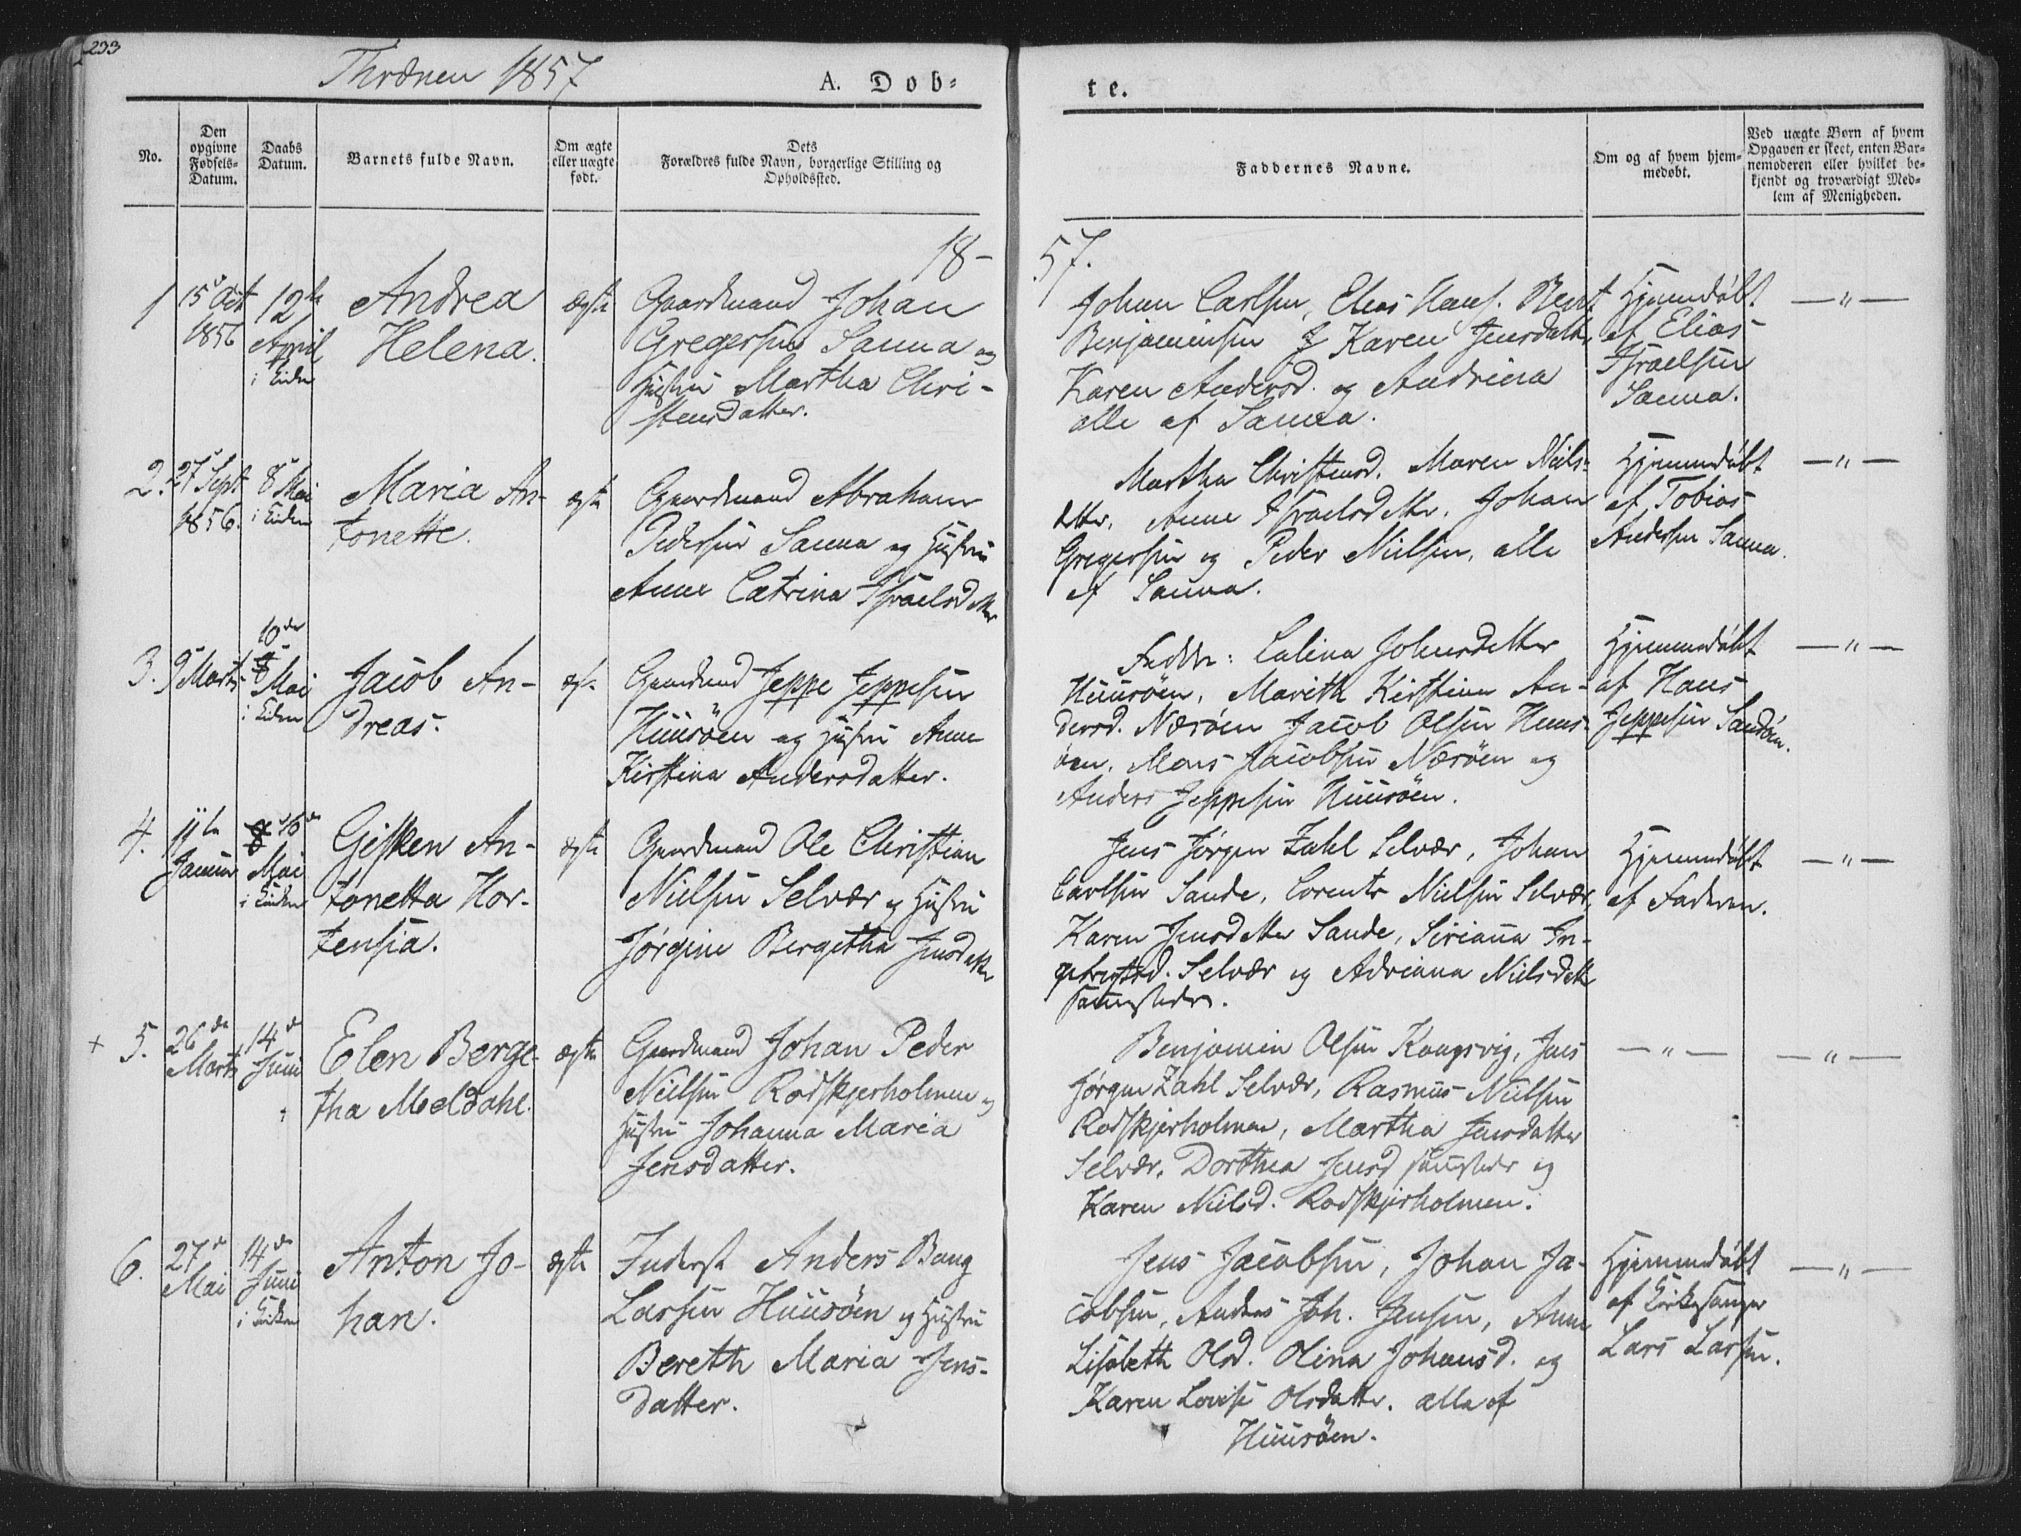 233
Thrænen 1857
A. Døb-
te.
No.
Den
opgivne
Fødsels-
Datum.
Daabs
Datum.
Barnets fulde Navn.
Om ægte
eller uægte
født.
Dets
Forældres fulde Navn, borgerlige Stilling og
Opholdssted.
Faddernes Navne.
Om og af hvem hjem-
medøbt.
Ved uægte Børn af hvem
Opgaven er skeet, enten Bar-
nemoderen eller hvilket be-
kjendt og troværdigt Med-
lem af Menigheden.
18-
57.
1
15 Oct
1856
12te
April
i Kirken
Andrea
Helena.
ægte
Gaardmand Johan
Gregersen Sanna og
Hustru Martha Chri-
stensdatter.
Johan Carlsen, Elias Hans. Bent
Benjaminsen Karen Jensdatter
Karen Andersd. og Andrina
alle af Sanna.
Hjemmedøbt
af Elias
Israelsen
Sanna.
— " —
2.
27 Sept
1856.
8 Mai
i Kirken
Maria An-
tonette.
ægte
Gaardmand Abraham
Pedersen Sanna og Hustru
Anne Catrina Israelsdatter
Martha Christensd. Maren Niels-
dtter, Anne Israelsdtter, Johan
Gregersen og Peder Nielsen, alle
af Sanna.
Hjemmedøbt
af Tobias
Andersen Sanna.
— " —
3.
9 Marts
10de
8
Mai
i Kirken
Jacob An-
dreas.
ægt.
Gaardmand Jeppe Jeppesen
Huusöen og Hustru Anne
Kirstina Andersdatter.
Fadder: Lalina Johnsdatter
Huusöen, Mareth Kirstina An-
dersd. Næröen Jacob Olsen Huus-
öen. Mons Jacobsen Næröen og
Anders Jeppesen Huusöen.
Hjemmedøbt
af Hans
Jeppesen Sandöen.
— " —
4.
11te
Januar
8 10de
Mai
i Kirken
Gisken An-
tonetta Hor-
tensia.
ægte
Gaardmand Ole Christian
Nielsen Selvær og Hustru
Jørgine Bergetha Jensdatter
Jens Jørgen Zahl Selvær, Johan
Carlsen Sande, Lorents Nielsen Selvær,
Karen Jensdatter Sande, Siriana In-
gebrigtsd. Selvær og Adriana Nielsdtter
sammesteds.
Hjemmedøbt
af Faderen.
— " —
+ 5.
26de
Marts
14de
Juni
Elen Berge-
tha Meldahl.
ægte
Gaardmand Johan Peder
Nielsen Rødskjerholmen og
Hustru Johanna Maria
Jensdatter.
Benjamin Olsen Kaagsvig, Jens
Jørgen Zahl Selvær, Rasmus Nielsen
Rødskjerholmen, Martha Jensdatter
Selvær, Dorthea Jensd sammesteds og
Karen Nielsd. Rødskjerholmen.
— " —
— " —
6.
27de
Mai
14de
Juni
i Kirken
Anton Jo-
han.
ægte
Inderst Anders Bang
Larsen Huusöen og Hustru
Bereth Maria Jens-
datter.
Jens Jacobsen, Johan Ja-
cobsen, Anders Joh. Jensen, Anne
Lisbeth Olsd. Olina Johansd. og
Karen Lovise Olsdatter. alle af
Huusöen.
Hjemmedøbt
af Kirkesanger
Lars Larsen.
— " —